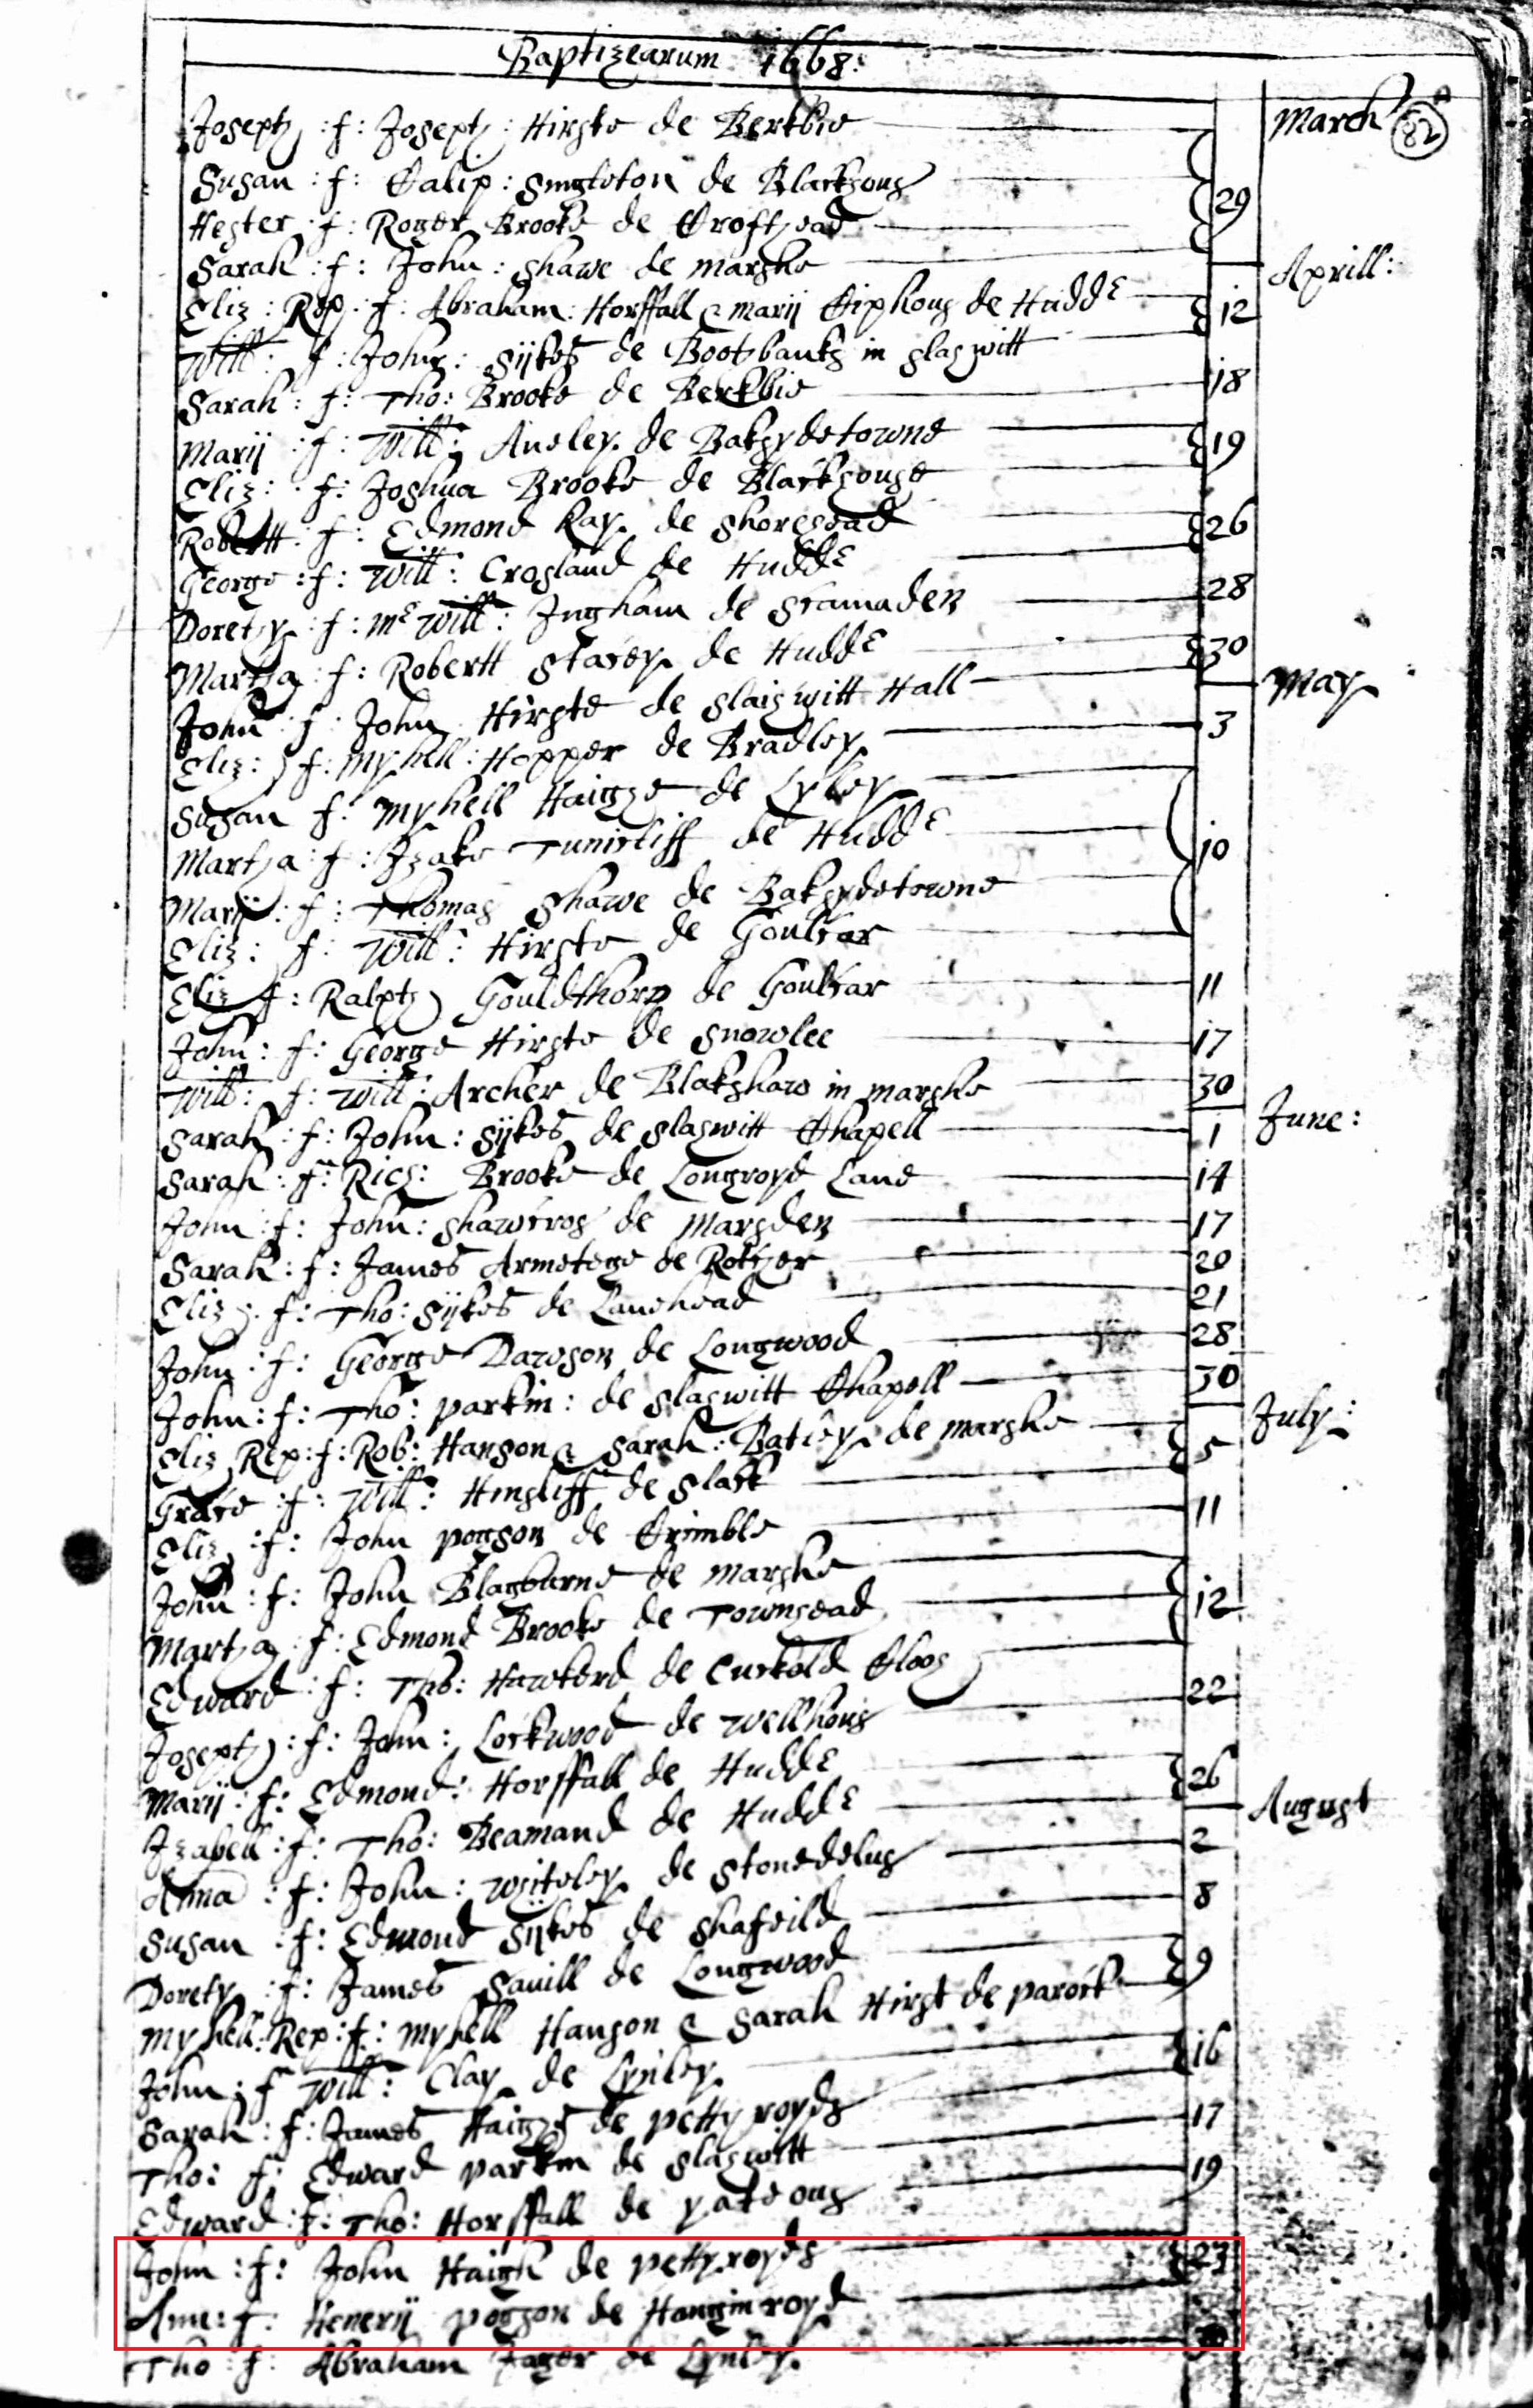 Baptizearum 1668:
March 28
Joseph : f : Joseph : Hirste de Berkbie
Susan : f : Calip : Singleton de Blackhous
Hester : f : Roger Brooke de Crofthead 29
Sarah : f : John : Shawe de Marshe
Aprill :
Eliz : Rep : f : Abraham : Horsfall & Marij de Hudd 12
Will : f : John : Sijkes de Boothbanks in Slaswitt
Sarah : f : Tho : Brooke de Berkbie 18
Marij : f : Will : Ansley de Baksydetowne 19
Eliz : f : Joshua Brooke de Blackhouse
Robertt : f : Edmond Kay de Shorehead 26
George : f : Will : Crosland de Hudd
Dorethy : f : Mr Will : Ingham de Scamaden 28
Martha : f : Robertt Stacey de Hudd 30
May
John : f : John Hirste de Slaighwitt Hall
Eliz : f : Myhell : Hopper de Bradley 3
Susan f : Myhell Haighe de
Martha : f : Izake Tunicliff de Hudd 10
Marij : f : Thomas Shawe de Baksydetowne
Eliz : f : Will : Hirste de Goulcar
Eliz f : Ralph Gouldthorp de Goulcar 11
John : f : George Hirste de Snowlee 17
Will : f : Will : Archer de Blakshaw in Marshe 30
June :
Sarah : f : John : Sijkes de Slaswitt Chapell 1
Sarah : f : Rich : Brooke de Longroyd Lane 14
John : f : John : Shawcros de Marsden 17
Sarah : f : James Armetege de Rother 20
Eliz : f : Tho : Sijkes de Lanehead 21
John : f : George Dawson de Longwood 28
John : f : Tho : Parkin : de Slaswitt Chapell 30
July :
Eliz Rep : f : Rob : Hanson & Sarah : Batley de Marshe 5
Grace : f : Will : Hinsliff de Slack
Eliz : f : John Pogson de Crimble 11
John : f : John Blagburne de Marshe
Martha : f : Edmond Brooke de Townhead 12
Edward : f : Tho : Hawkerd de Cuckold Cloos
Joseph : f : John : Lockwood de Wellhous 22
Marij : f : Edmond : Horsfall de Hudd
Izabell : f : Tho : Beamand de Hudd 26
August
Anna : f : John : Whiteley de Stonedelus 2
Susan : f : Edmond Sijkes de Shafeild 8
Dorety : f : James Savill de Longwood
Myhell : Rep : f : Myhell Hanson & Sarah Hirst de Parock 9
John : f Will : Clay de Lynley
Sarah : f : James Haighe de Pettyroyds 16
Tho : f : Edward Parkin de Slaswitt 17
Edward : f : Tho : Horsfall de Yateous 19
John : f : John Haigh de Pettyroyds 23
Ann : f : Henerij Pogson de Hanginroyd
Tho : f : Abraham de Lynley